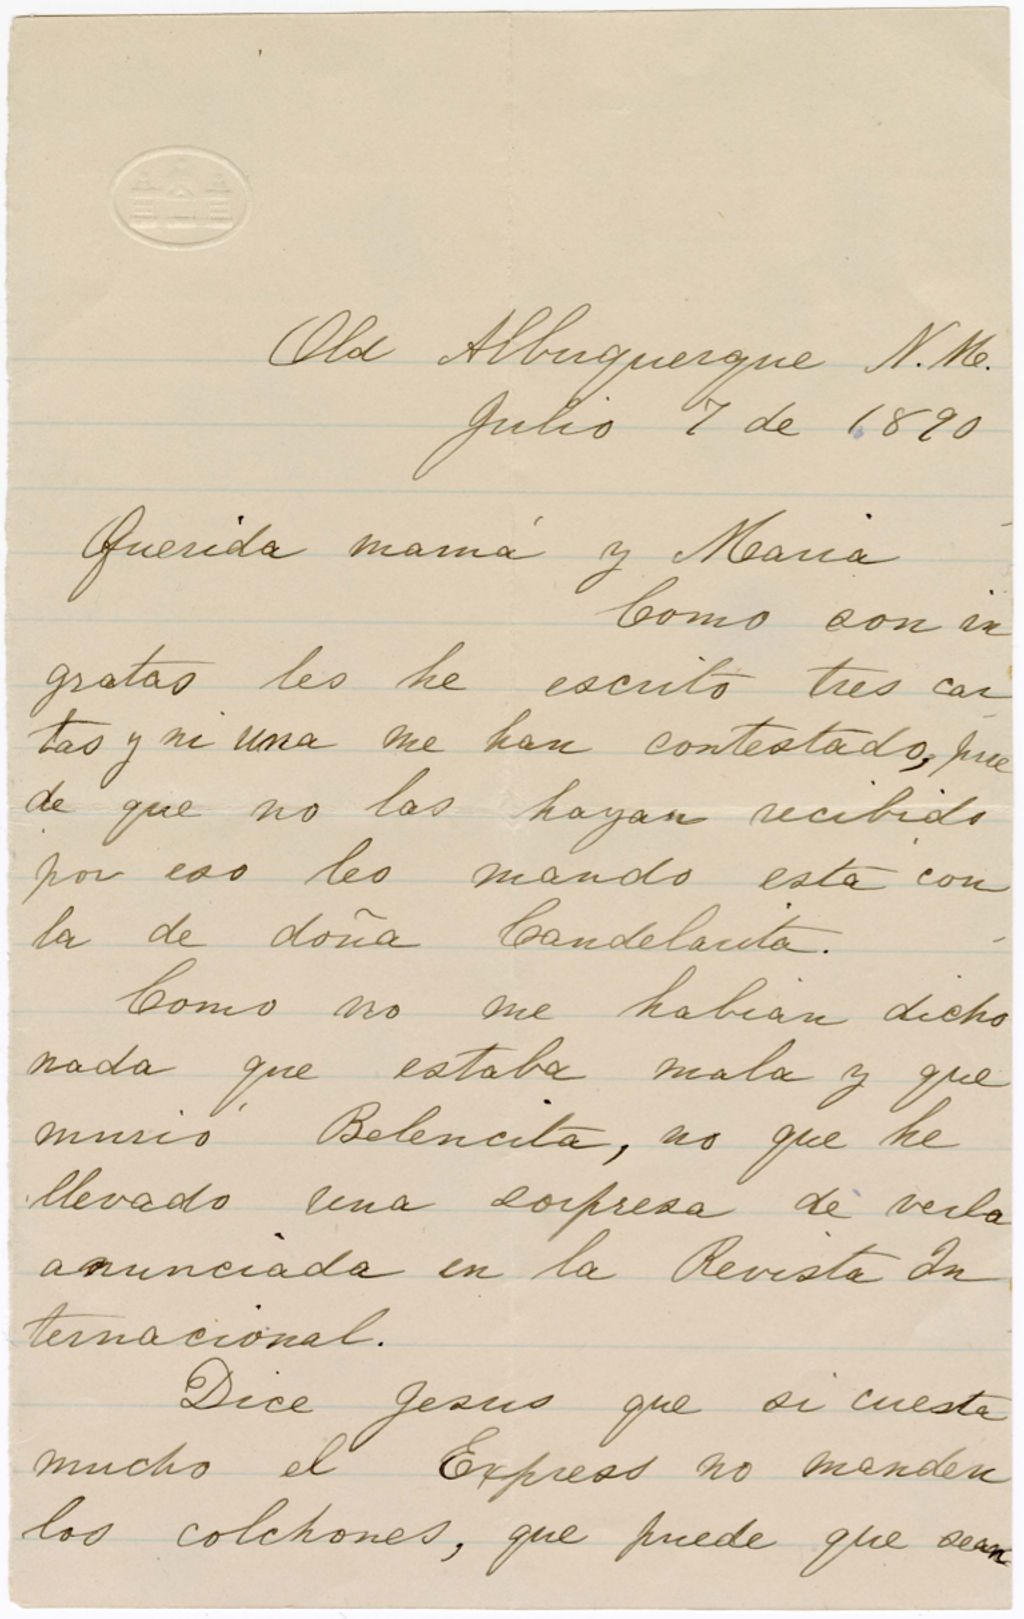 Old Albuquerque N.M.
Julio 7 de 1890
Querida mamá y Maria
Como son in
gratas les he escrito tres car
tas y ni una me han contestado, pue
de que no las hayan recibido
por eso les mando esta con
la de doña Candelarita.
Como no me habian dicho
nada que estaba mala y que
murió Belencita, no que he
llevado una sorpresa de verla
anunciada en la Revista In
ternacional.
Dice Jesus que si cuesta
mucho el Express no manden
los colchones, que puede que sean